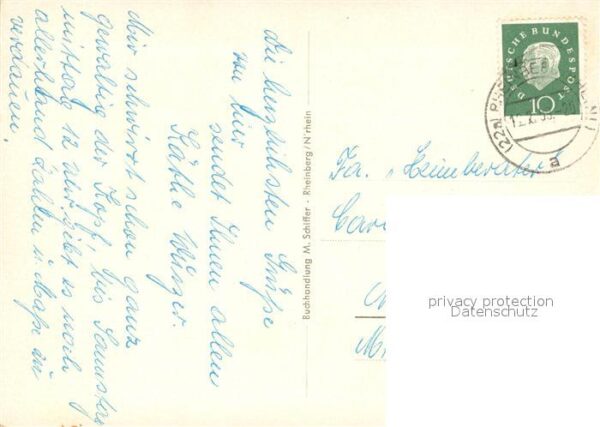 die herzlichsten Grüße
von hier
sendet Ihnen allen
Käthe Winzer.
Mir schwirrt schon ganz
gewaltig der Kopf, bis Samstag
mittag 12 Uhr gibt es noch
allerhand Zahlen u. Maße zu
verdauen.
Buchhandlung M. Schiffer - Rheinberg/N'rhein
DEUTSCHE BUNDESPOST
10
(22a)
a
Fa. Heimberater
privacy protection
Datenschutz